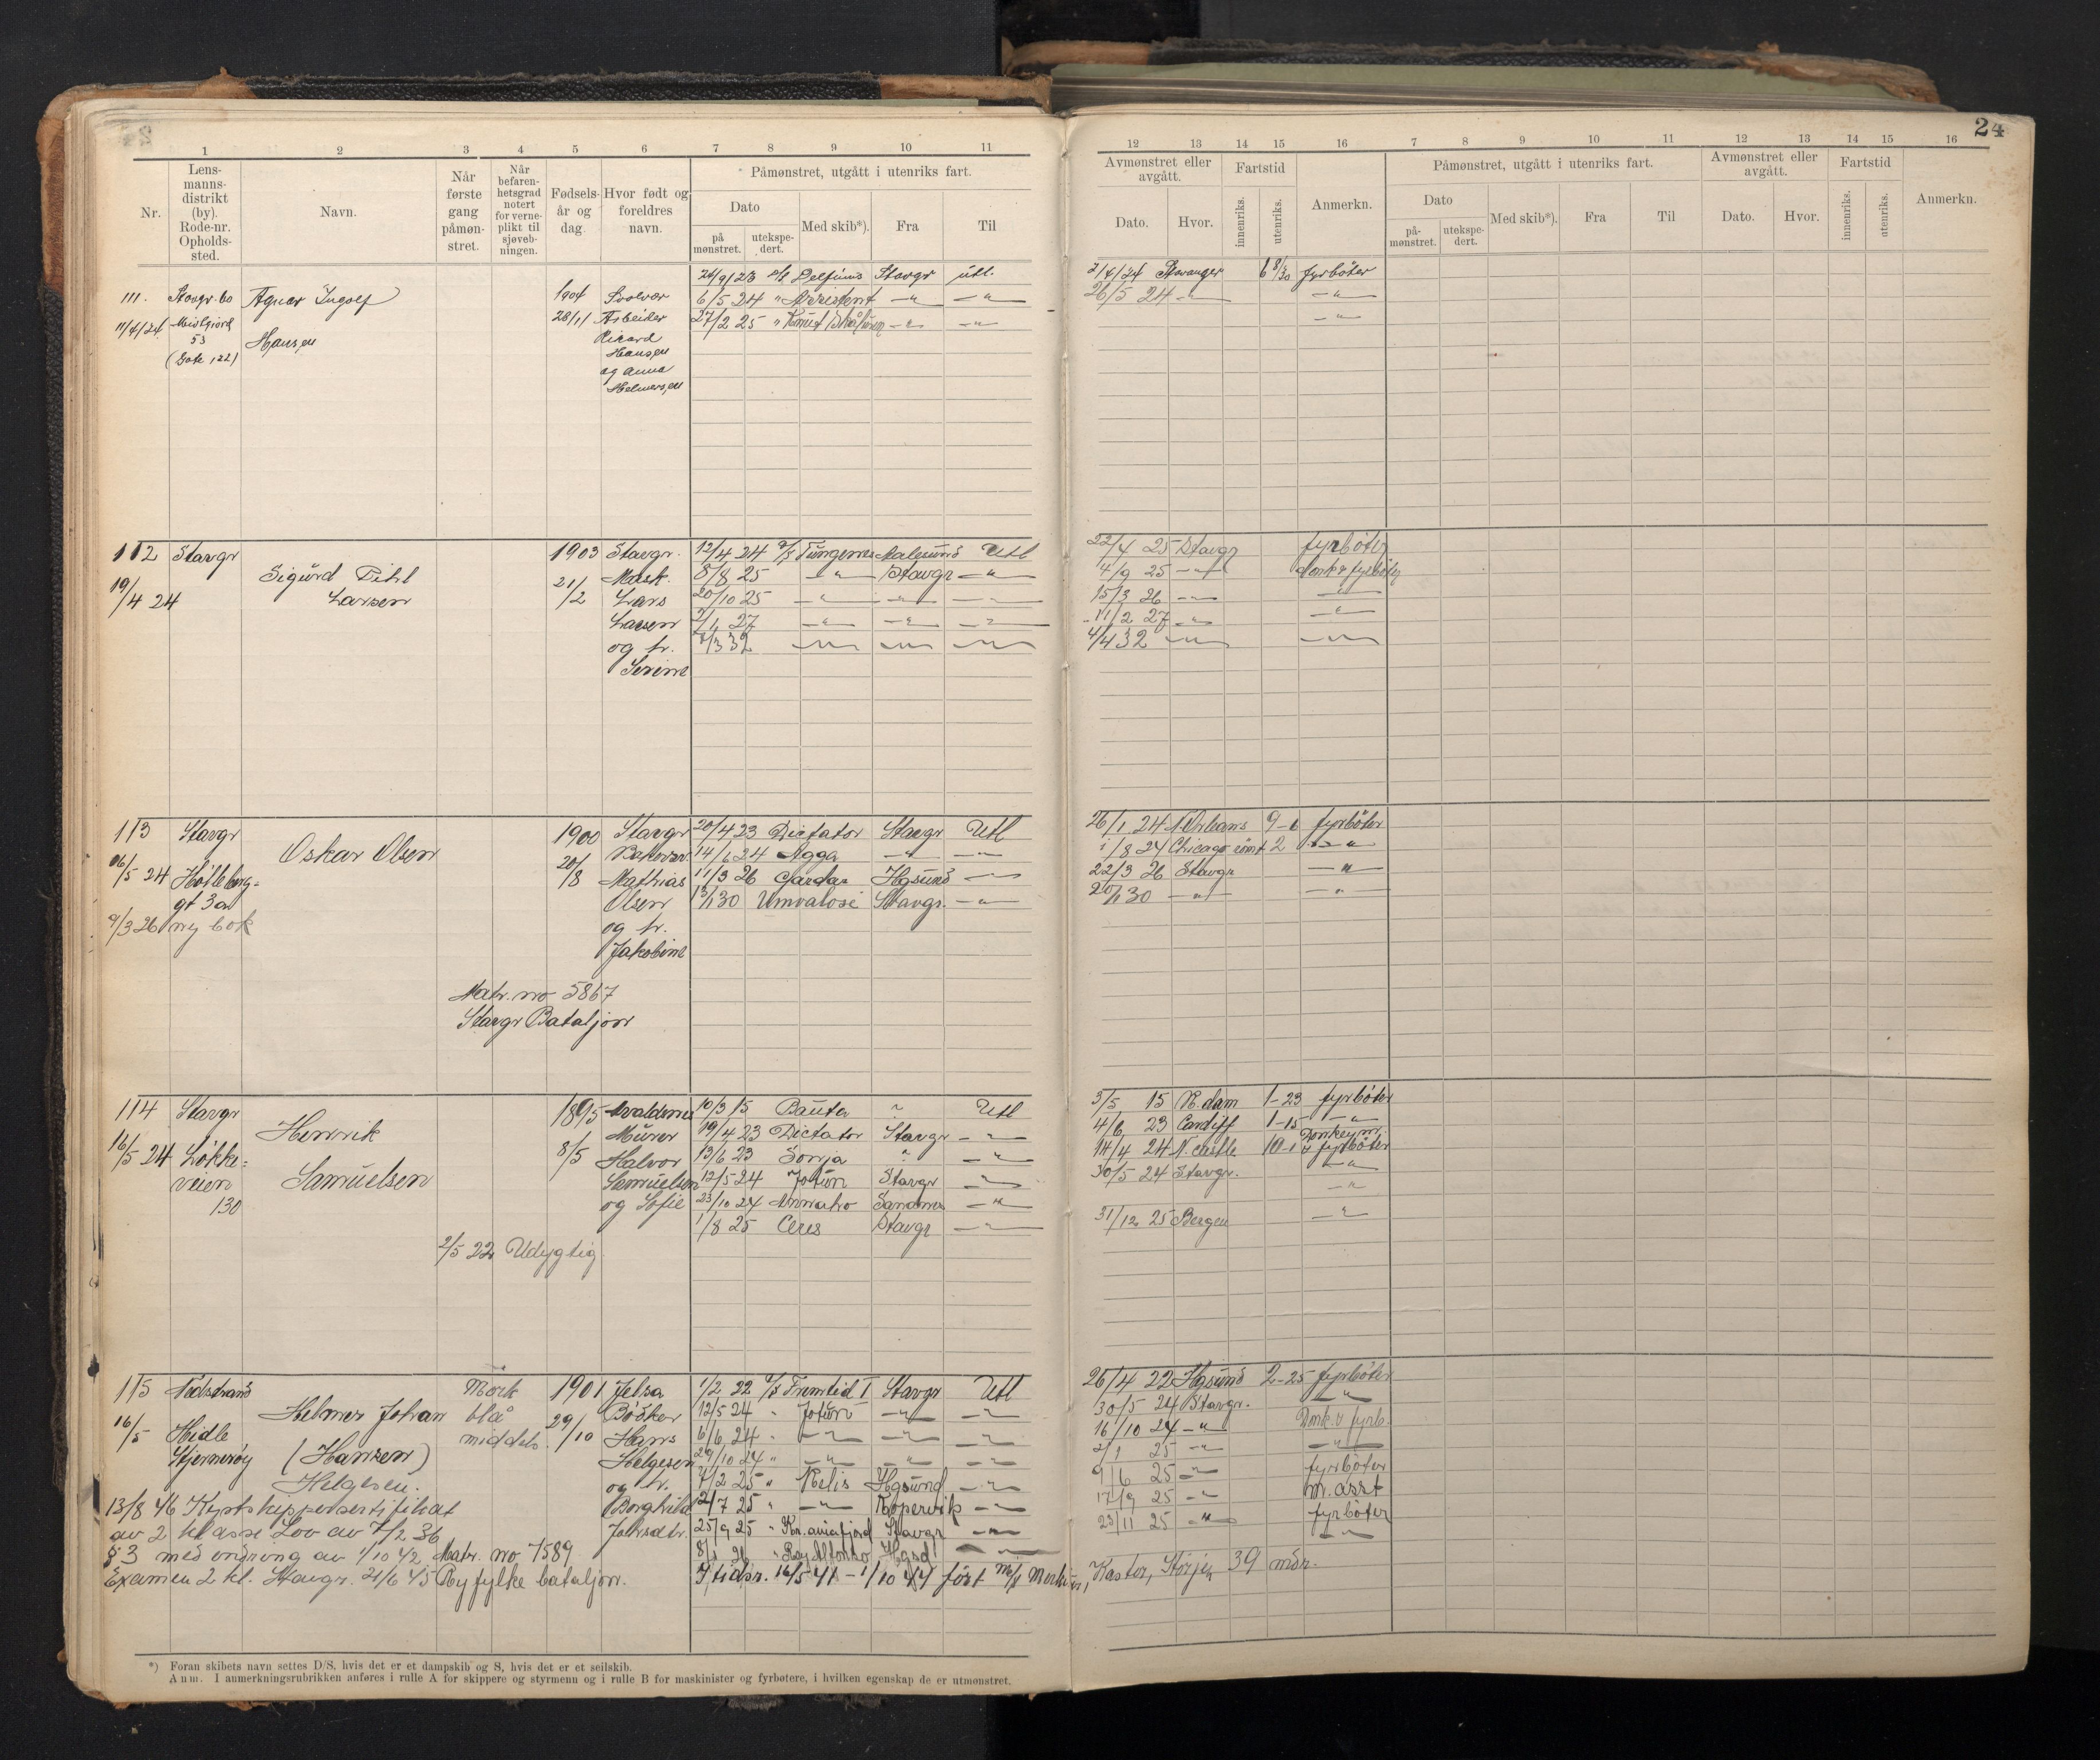 24
1 2 3 4 5 6 7 8 9 10 11
12 13 14 15 16 7 8 9 10 11 12 13 14 15 16
Nr.
Lens-
manns-
distrikt
(by).
Rode-nr.
Opholds-
sted.
Navn.
Når
første
gang
påmøn-
stret.
Når
befaren-
hetsgrad
notert
for verne-
plikt til
sjøveb-
ningen.
Fødsels-
år og
dag.
Hvor født og
foreldres
navn.
Påmønstret, utgått i utenriks fart.
Dato
på
mønstret.
utekspe-
dert.
Med skib*).
Fra
Til
Avmønstret eller
avgått.
Dato.
Hvor.
Fartstid
innenriks.
utenriks.
Anmerkn.
Påmønstret, utgått i utenriks fart.
Dato
på-
mønstret.
utekspe-
dert.
Med skib*).
Fra
Til
Avmønstret eller
avgått.
Dato.
Hvor.
Fartstid
innenriks.
utenriks.
Anmerkn.
111. Stavgr. bo Agnar Ingolf
11/4/24 Midtgjord
53
(Gate 122)
Hansen
1904
28/11
Svolvær
Arbeider
Rikard
Hansen
og Anna
Helmersen
Delfinus Stavgr utl.
6/5 24 " Assistent —"— —"—
27/2 25 " Knud Skåluren —"— —"—
2/4/24 Stavanger 6 8/30 fyrbøter
26/5 24 —"— —"—
—"—
112 Stavgr
19/4 24
Sigurd Pihl
Larsen
1903
21/2
Stavgr.
Mask.
Lars
Larsen
og h.
Serine
12/4 24 D/S Tungenes Aalesund Utl
8/8 25 —"— Stavgr —"—
20/10 25 —"— —"— —"—
2/1 27 —"— —"— —"—
7/3 32 —"— —"— —"—
22/4 25 Stavgr fyrbøter
4/9 25 —"— donk. & fyrbøter
15/3 26 —"— —"—
11/2 27 —"— —"—
4/4 32 —"— —"—
113 Stavgr
16/5 24 Høtleborg-
gt 3a
9/3 26 ny bok
Oskar Olsen
1900
20/8
Stavgr
Bekersv.
Mathias
Olsen
og h.
Jakobine
Matr. no 5867
Stavgr Bataljon
20/4 23 Dictator Stavgr Utl
14/6 24 Agga —"— —"—
11/3 26 Gardar Hgsund —"—
13/1 30 Umvalosi Stavgr. —"—
26/1 24 N. Orleans 9-6 fyrbøter
1/8 24 Chicago rømt 2 —"—
22/3 26 Stavgr —"—
20/1 30 —"— —"—
114 Stavgr
16/5 24 Løkke-
veien
130
Henrik
Samuelsen
2/5 22 Udygtig.
1895
8/5
Avaldsnes
Murer
Halvor
Samuelsen
og Sofie
10/3 15 Bauta " Utl
19/4 23 Dictator Stavgr —"—
13/6 23 Sonja " —"—
12/5 24 Jotun Stavgr —"—
23/10 24 Sandnes —"—
1/8 25 Ceres Stavgr —"—
3/5 15 R.dam 1-23 fyrbøter
4/6 23 Cardiff 1-15 —"—
14/4 24 N. castle 10-1 Donkeym. & fyrbøter
30/5 24 Stavgr. —"—
—"—
31/12 25 Bergen —"—
115 Nedstrand
16/5 Hidle
Stjernerøy
Helmer Johan
(Hansen)
Helgesen.
Mørk
blå
middels
1901
29/10
Jelsa
Bødker
Hans
Helgesen
og h.
Borghild
Johsdtr.
13/8 46 Kystskippersertifikat
av 2 klasse Lov av 7/2 36
§ 3 med endring av 1/10 42 Matr. no 7589
Examen 2 kl. Stavgr. 21/6 45 Ryfylke bataljon.
1/2 22 D/S Fremtid I Stavgr Utl
12/5 24 " Jotun —"— —"—
6/6 24 " —"— —"— —"—
29/10 24 " —"— —"— —"—
7/2 25 " Nelis Hgsund —"—
2/7 25 " —"— Kopervik —"—
25/9 25 " Kr.aniafjord Stavgr —"—
8/1 26 " Hgsd —"—
I tidsr. 16/5 41 – 1/10 44 ført M/S Merkur, Kastor, Stirjen 39 mdr.
26/4 22 Hgsund 2-25 fyrbøter
30/5 24 Stavgr. —"—
16/10 24 —"— Donk. & fyrb.
2/1 25 —"— —"—
9/6 25 —"— fyrbøter
17/9 25 —"— m. asst
23/11 25 —"— fyrbøter
—"—
*) Foran skibets navn settes D/S, hvis det er et dampskib og S, hvis det er et seilskib.
Anm. I anmerkningsrubrikken anføres i rulle A for skippere og styrmenn og i rulle B for maskinister og fyrbøtere, i hvilken egenskap de er utmønstret.